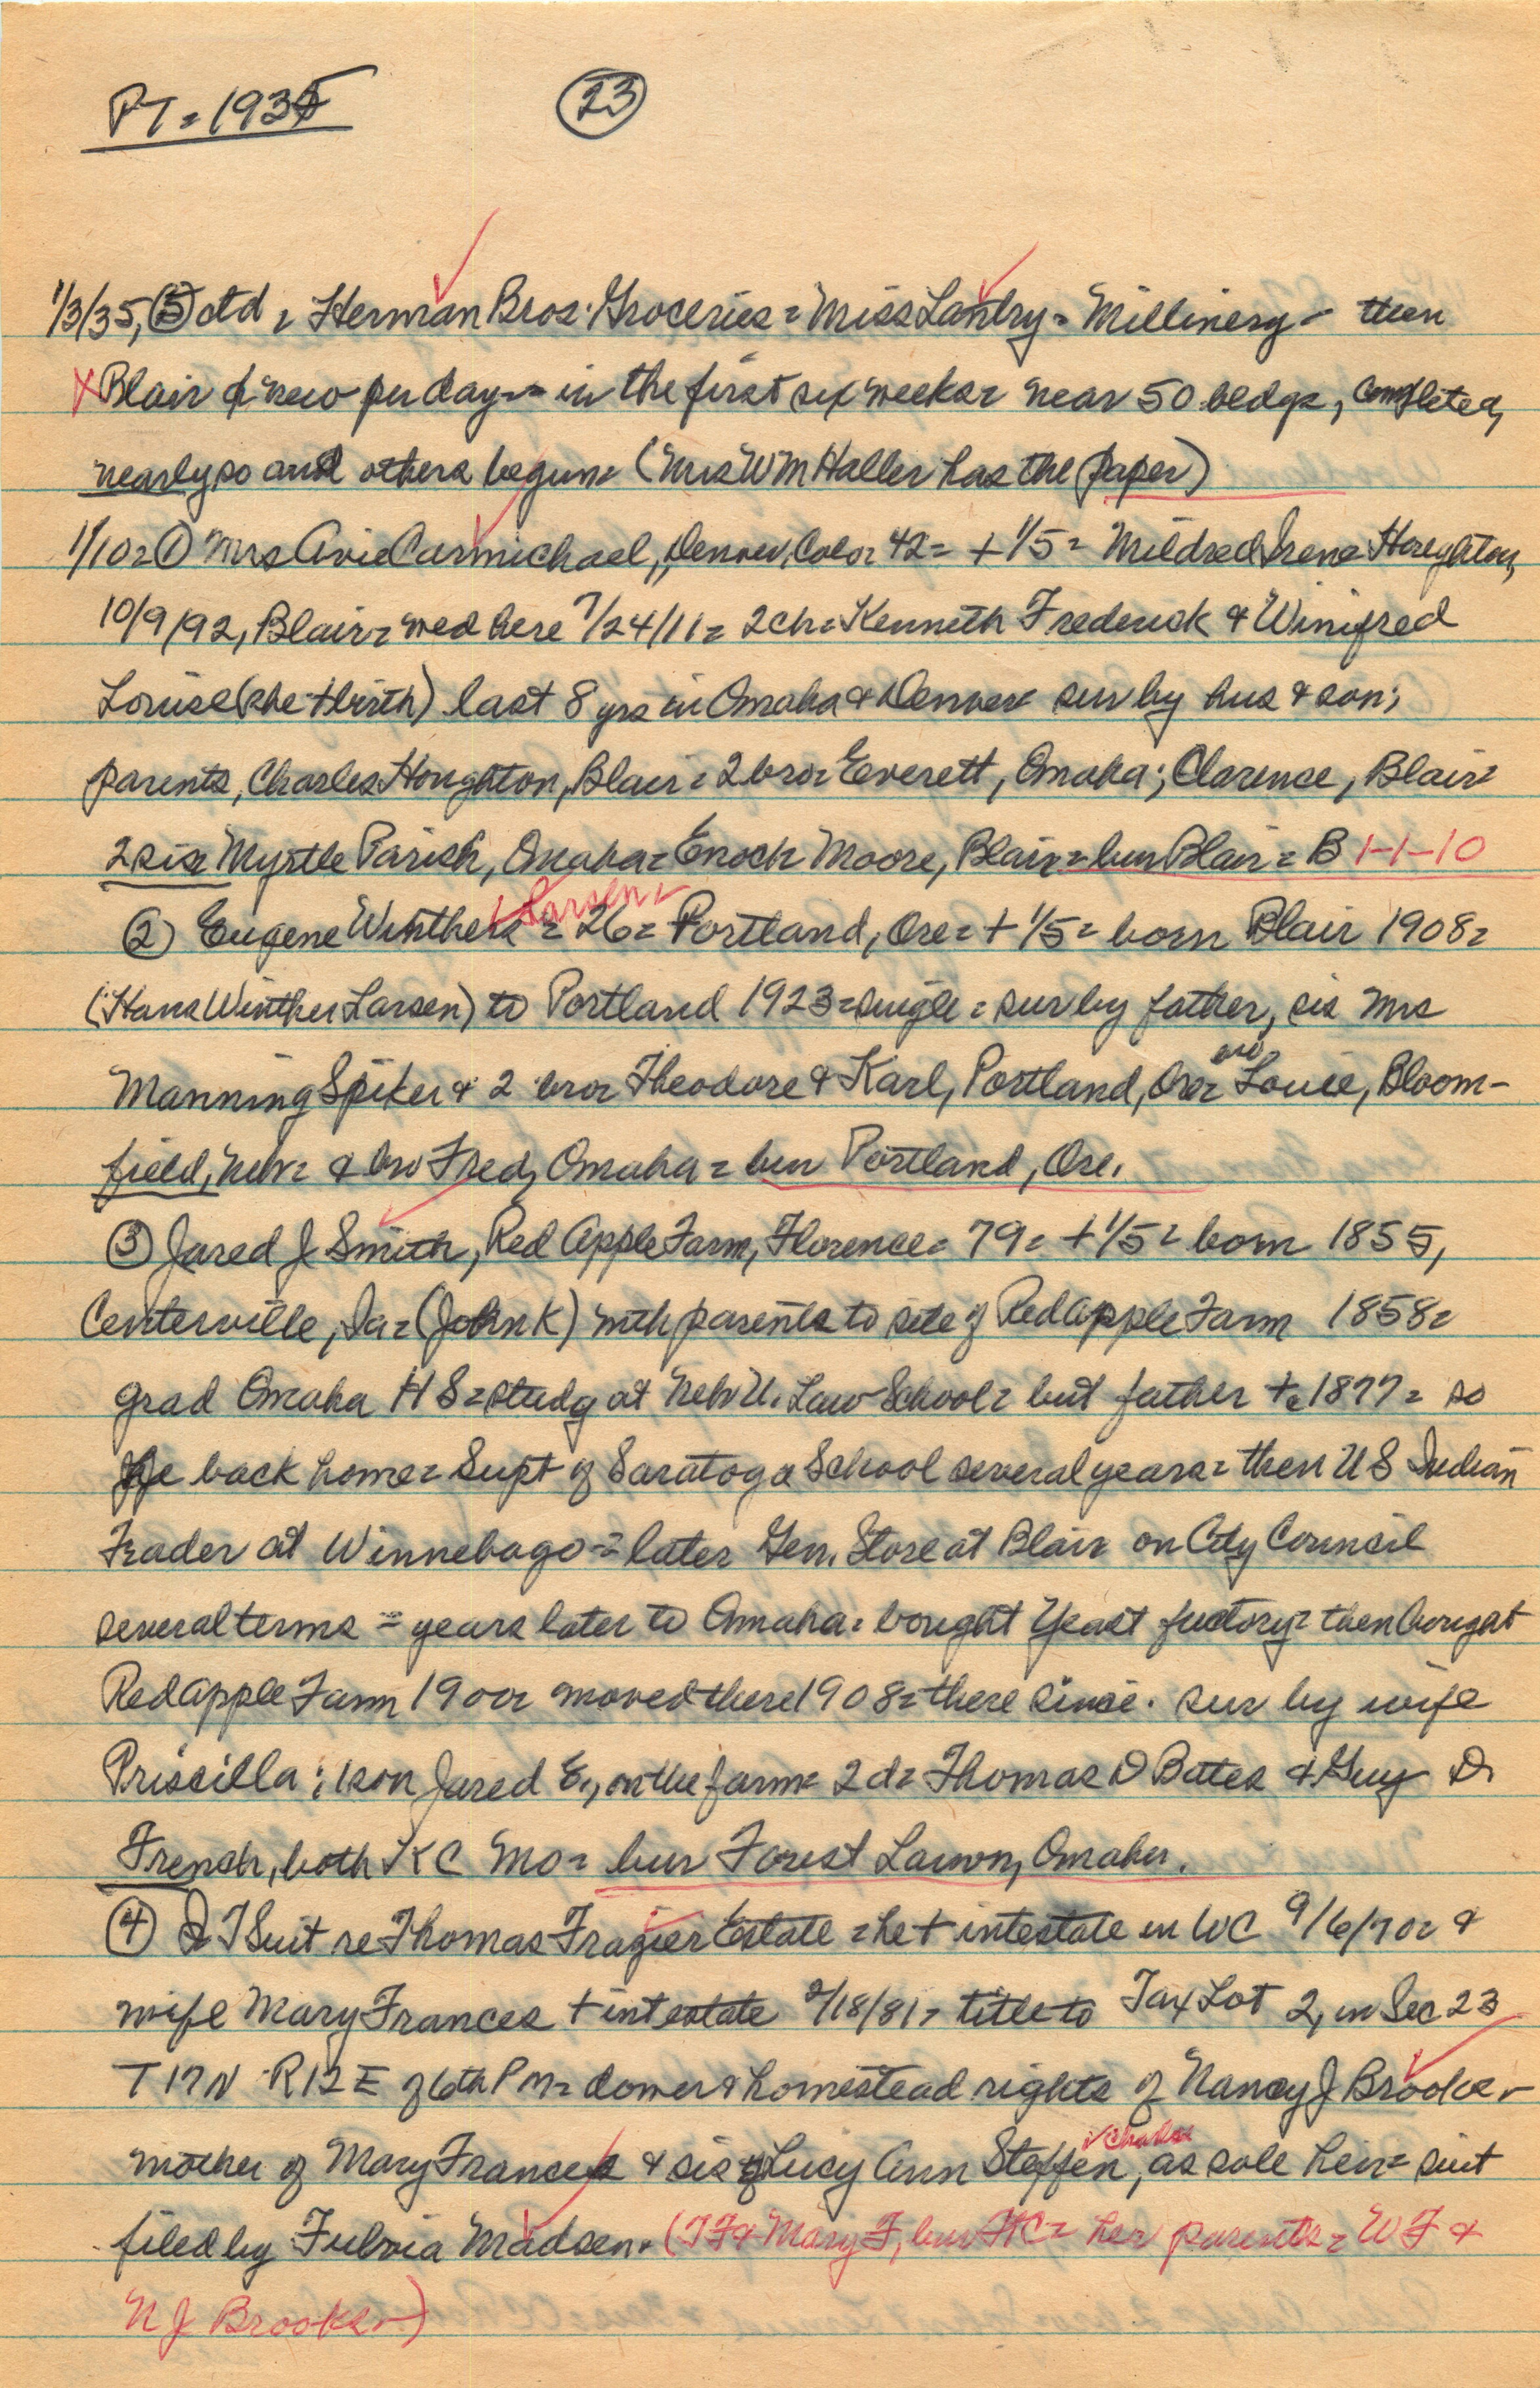 PT = 1935
23
1/3/35, (5) ctd = Herman Bros. Groceries = Miss Lantry = Millinery = then
Blair & new per day = in the first six weeks = near 50 bldgs, completed,
nearly so and others begun = (Mrs WM Haller has the paper)
1/10 = (1) Mrs Avie Carmichael, Denver, Colo = 42 = + 1/5 = Mildred Irene Houghton,
10/9/92, Blair = wed here 7/24/11 = 2 ch = Kenneth Frederick & Winifred
Louise (she + birth) last 8 yrs in Omaha & Denver = sur by hus & son;
parents, Charles Houghton, Blair = 2 bro = Everett, Omaha; Clarence, Blair =
2 sis = Myrtle Parish, Omaha = Enoch Moore, Blair = bur Blair = B 1-1-10
Larsen =
(2) Eugene Winther = 26 = Portland, Ore = + 1/5 = born Blair 1908 =
(Hans Winther Larsen) to Portland 1923 = single = sur by father, sis Mrs
Manning Spiker & 2 bro = Theodore & Karl, Portland, Ore = Louie, Bloom-
field, Neb = & bro Fred, Omaha = bur Portland, Ore.
(3) Jared J Smith, Red Apple Farm, Florence = 79 = + 1/5 = born 1855,
Centerville, Ia = (John K) with parents to site of Red Apple Farm 1858 =
grad Omaha H S = study at Neb U. Law School = but father + c 1877 = so
He back home = Supt of Saratoga School several years = then U S Indian
Trader at Winnebago = later Gen. Store at Blair on City Council
several terms = years later to Omaha = bought Yeast factory = then bought
Red Apple Farm 1900 = moved there 1908 = there since. sur by wife
Priscilla; 1 son Jared E., on the farm = 2 d = Thomas D Bates & Guy D
French, both K C Mo = bur Forest Lawn, Omaha.
(4) Q T Suit re Thomas Frazier Estate = he + intestate in WC 9/6/70 = &
wife Mary Frances + intestate 2/18/81 = title to Tax Lot 2, in Sec 23
T 17 N R 12 E of 6th P M = dower & homestead rights of Nancy J Brooks =
✓ Chalse
mother of Mary Frances & sis of Lucy Ann Steffen, as sole heir = suit
filed by Fulvia Madsen. (TF & Mary F, bur FtC = her parents = W F &
N J Brooks =)